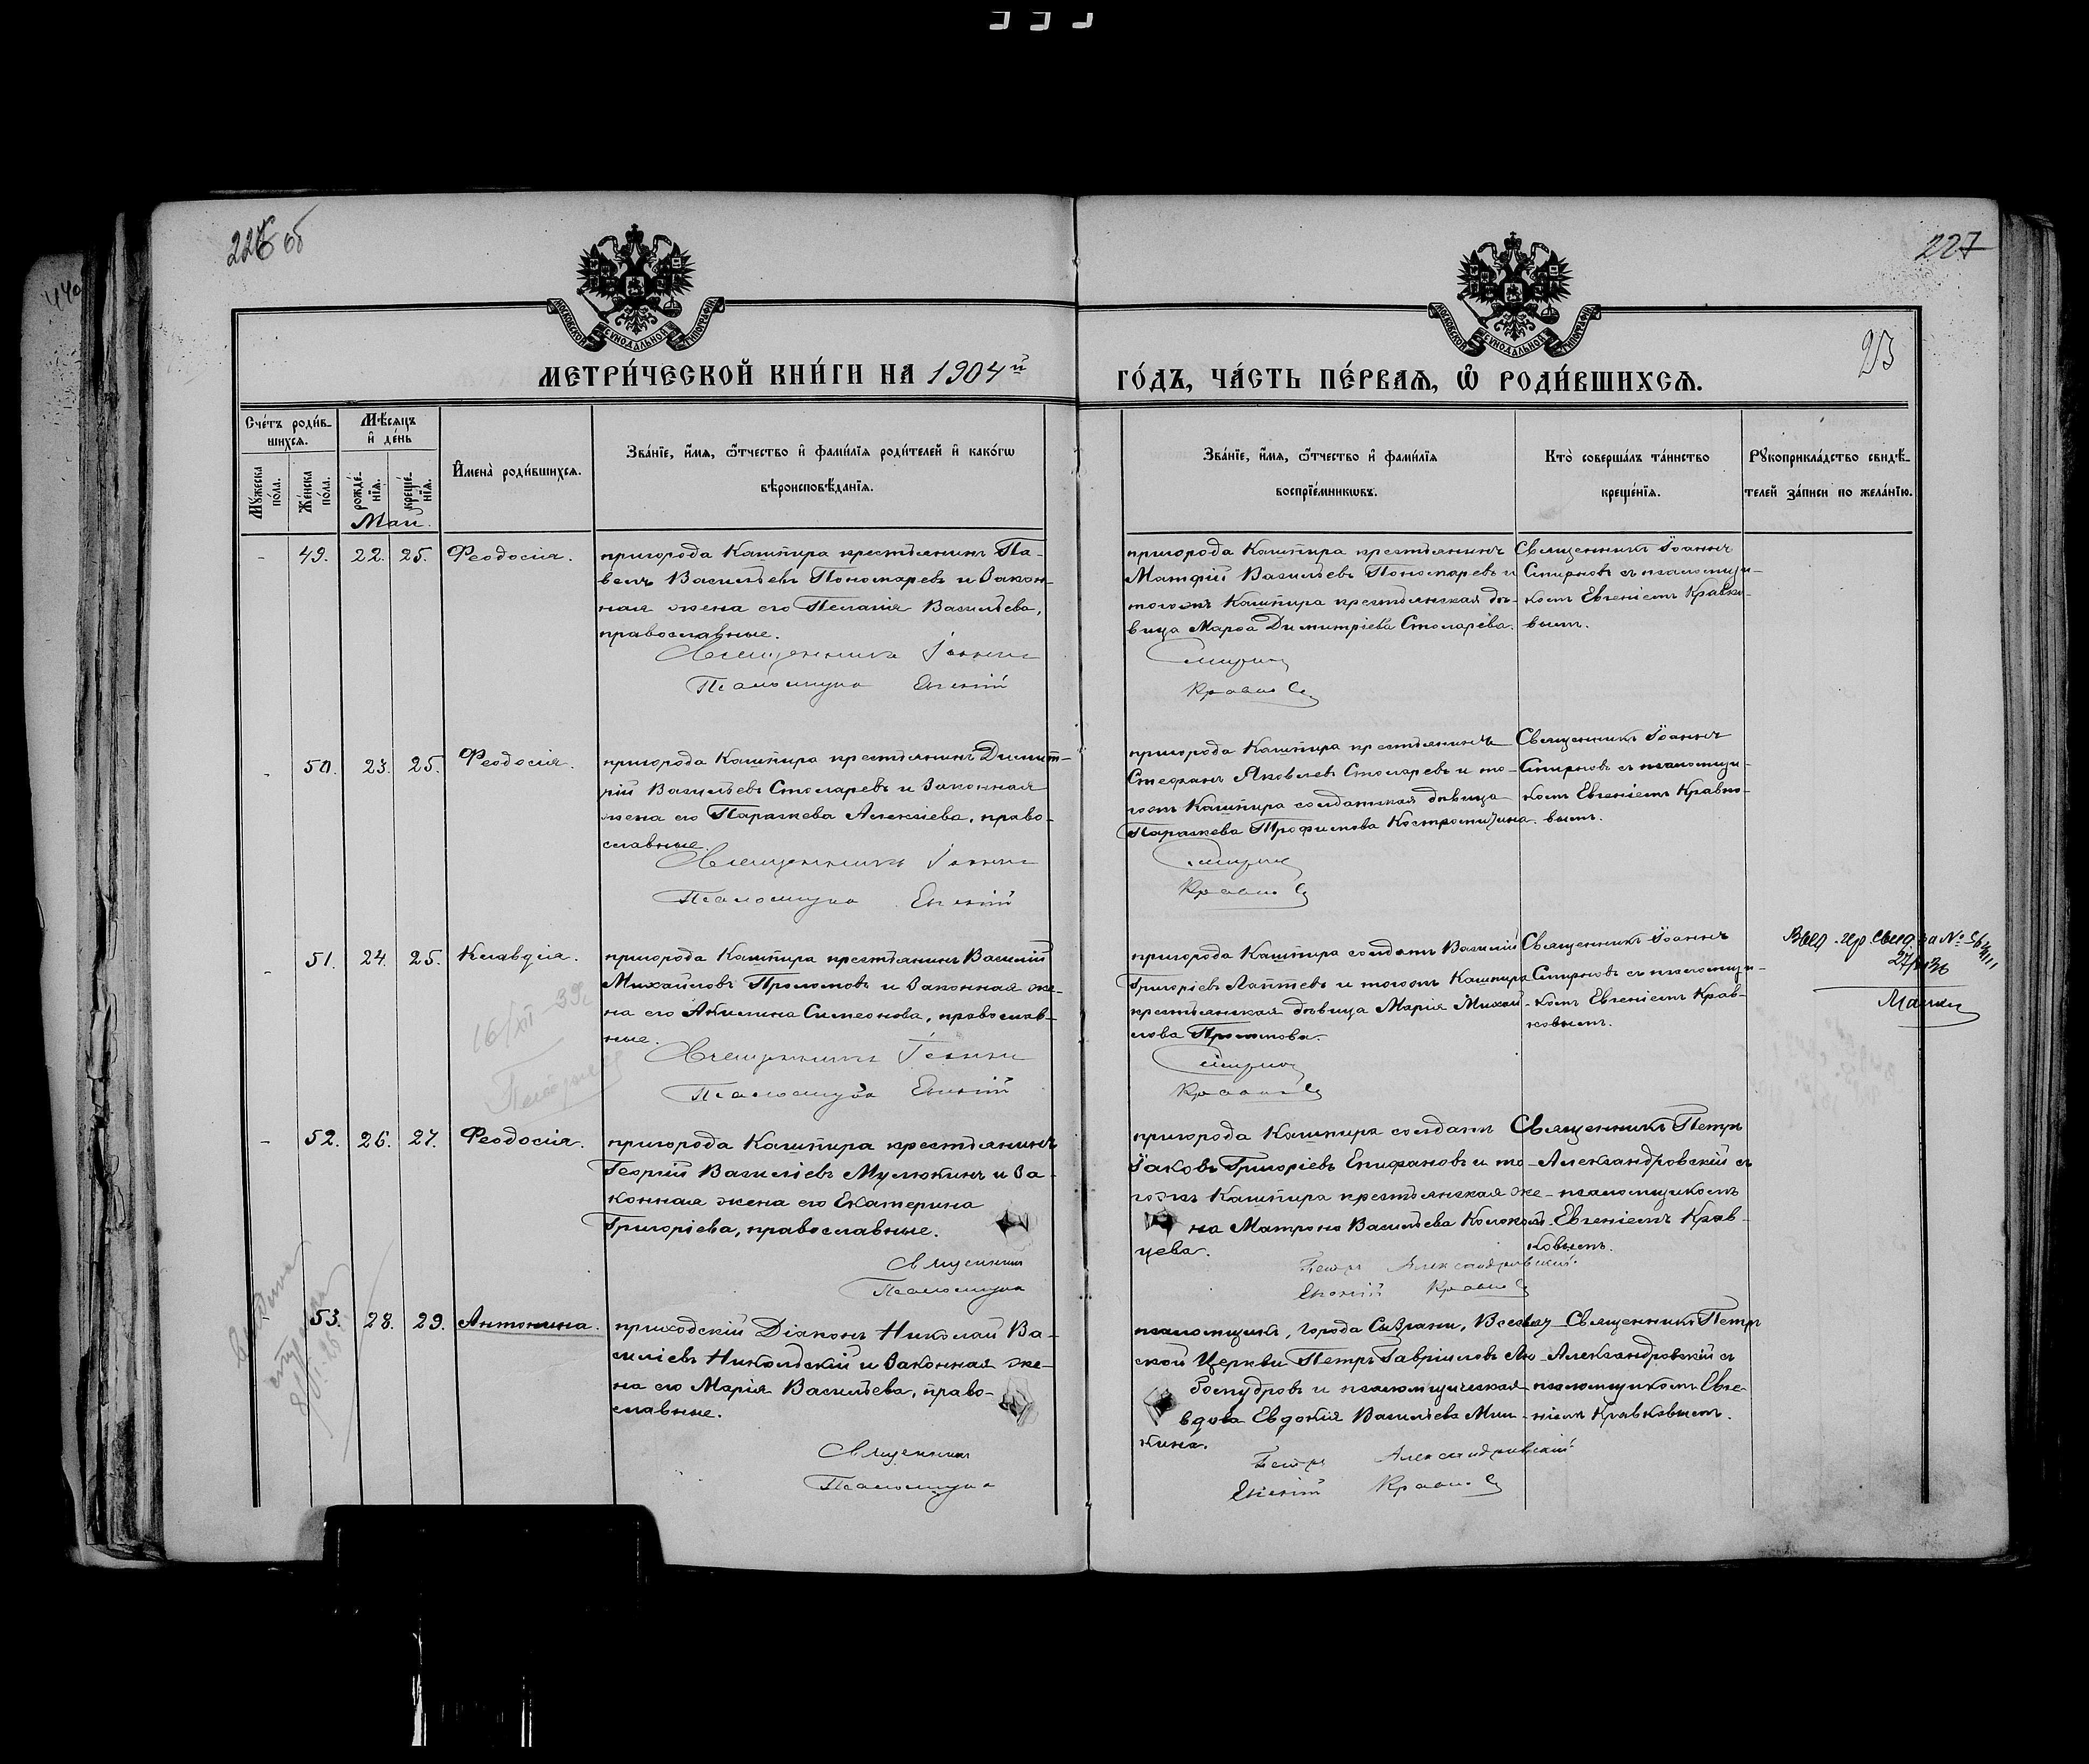 226 об
227
23
МОСКОВСКОЙ СѴНОДАЛЬНОЙ ТИПОГРАФІИ
МОСКОВСКОЙ СѴНОДАЛЬНОЙ ТИПОГРАФІИ
МЕТРИ́ЧЕСКОЙ КНИ́ГИ НА 1904й
ГО́ДЪ, ЧА́СТЬ ПЕ́РВАѦ, Ѡ҆ РОДИ́ВШИХСѦ.
Сче́тъ роди́в-
шихсѧ.
Мѣ́сѧцъ
и҆ де́нь
Мꙋ́жеска по́ла.
Же́нска по́ла.
рожде́-нїѧ.
креще́-нїѧ.
Май.
И҆мена̀ роди́вшихсѧ.
Зва́нїе, и҆́мѧ, ѻ҆́тчество и҆ фамилїѧ роди́телей и҆ како́гѡ
вѣроисповѣ́данїѧ.
Зва́нїе, и҆́мѧ, ѻ҆́тчество и҆ фамилїѧ
воспрїе́мникѡвъ.
Кто̀ соверша́лъ та́инство
креще́нїѧ.
Рꙋкоприкла́дство свидѣ́-
телей за́писи по жела́нїю.
- 49. 22. 25. Феодосія.
пригорода Кашпира крестьянинъ Па-
велъ Васильевъ Пономаревъ и закон-
ная жена его Пелагія Васильева,
православные.
Священникъ Іоаннъ
Псаломщикъ Евгеній
пригорода Кашпира крестьянинъ
Матфій Васильевъ Пономаревъ и
тогожъ Кашпира крестьянская дѣ-
вица Марѳа Димитріева Столярева.
Смирнов
Кравков
Священникъ Іоаннъ
Смирновъ съ псаломщи-
комъ Евгеніемъ Кравко-
вымъ.
- 50. 23. 25. Феодосія.
пригорода Кашпира крестьянинъ Димит-
рій Васильевъ Столяревъ и законная
жена его Параскева Алексіева, право-
славные.
Священникъ Іоаннъ
Псаломщикъ Евгеній
пригорода Кашпира крестьянинъ
Стефанъ Яковлевъ Столяревъ и то-
гожъ Кашпира солдатская дѣвица
Параскева Трофимова Костромитина.
Смирнов
Кравков
Священникъ Іоаннъ
Смирновъ съ псаломщи-
комъ Евгеніемъ Кравко-
вымъ.
- 51. 24. 25. Клавдія.
16/XII-39г
пригорода Кашпира крестьянинъ Василій
Михайловъ Проломовъ и законная же-
на его Акилина Симеонова, православ-
ные.
Священникъ Іоаннъ
Псаломщикъ Евгеній
пригорода Кашпира солдатъ Василій
Григоріевъ Лаптевъ и тогожъ Кашпира
крестьянская дѣвица Марія Михай-
лова Проломова.
Смирнов
Кравков
Священникъ Іоаннъ
Смирновъ съ псаломщи-
комъ Евгеніемъ Крав-
ковымъ.
- 52. 26. 27. Феодосія.
пригорода Кашпира крестьянинъ
Георгій Василіевъ Мулюкинъ и за-
конная жена его Екатерина
Григоріева, православные.
Священникъ
Псаломщикъ
пригорода Кашпира солдатъ
Іаковъ Григоріевъ Епифановъ и то-
гожъ Кашпира крестьянская же-
на Матрона Васильева Колоколь-
цева.
Петръ Александровскій.
Евгеній Кравков
Священникъ Петръ
Александровскій съ
псаломщикомъ
Евгеніемъ Крав-
ковымъ.
53. 28. 29. Антонина.
приходскій Діаконъ Николай Ва-
силіевъ Никольскій и законная же-
на его Марія Васильева, право-
славные.
Священникъ
Псаломщикъ
псаломщикъ, города Сызрани, Всесвят-
ской Церкви Петръ Гавріиловъ
и псаломщическая
вдова Евдокія Васильева Мин-
кина.
Петръ Александровскій
Евгеній Кравков
Священникъ Петръ
Александровскій съ
псаломщикомъ Евге-
ніемъ Кравковымъ.